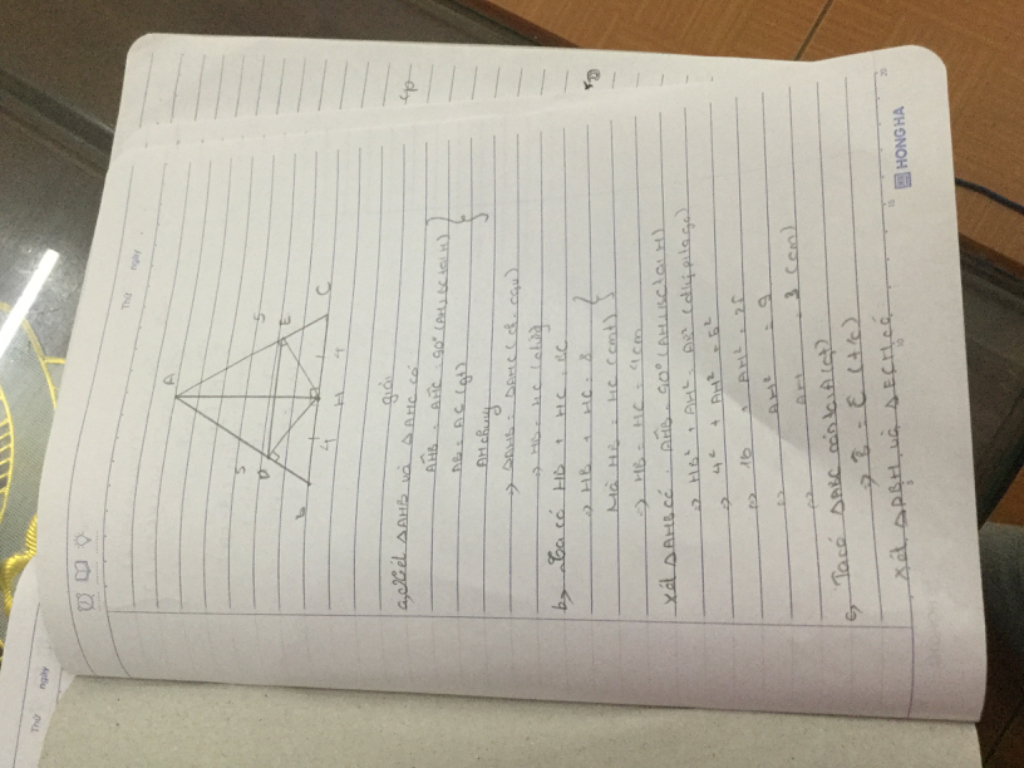 Thứ
ngày
A
5
5
D
E
B
C
4
H
4
giải
a, Xét ΔAHB và ΔAHC có
AĤB = AĤC = 90° (AH⊥BC tại H)
AB = AC (gt)
AH chung
=> ΔAHB = ΔAHC
=> HB = HC
b, Ta có HB + HC = BC
=> HB + HC = 8
Mà HB = HC (cmt)
=> HB = HC = 4cm
Xét ΔAHB có AĤB = 90° (AH⊥BC tại H)
=> HB² + AH² = AB² (đlý pitago)
=> 4² + AH² = 5²
16 + AH² = 25
AH² = 9
AH = 3 (cm)
c, Ta có ΔABC cân tại A (gt)
=> B̂ = Ĉ (t/c)
Xét ΔDBH và ΔECH có
5
10
15
20
HONG HA
Thứ
ngày